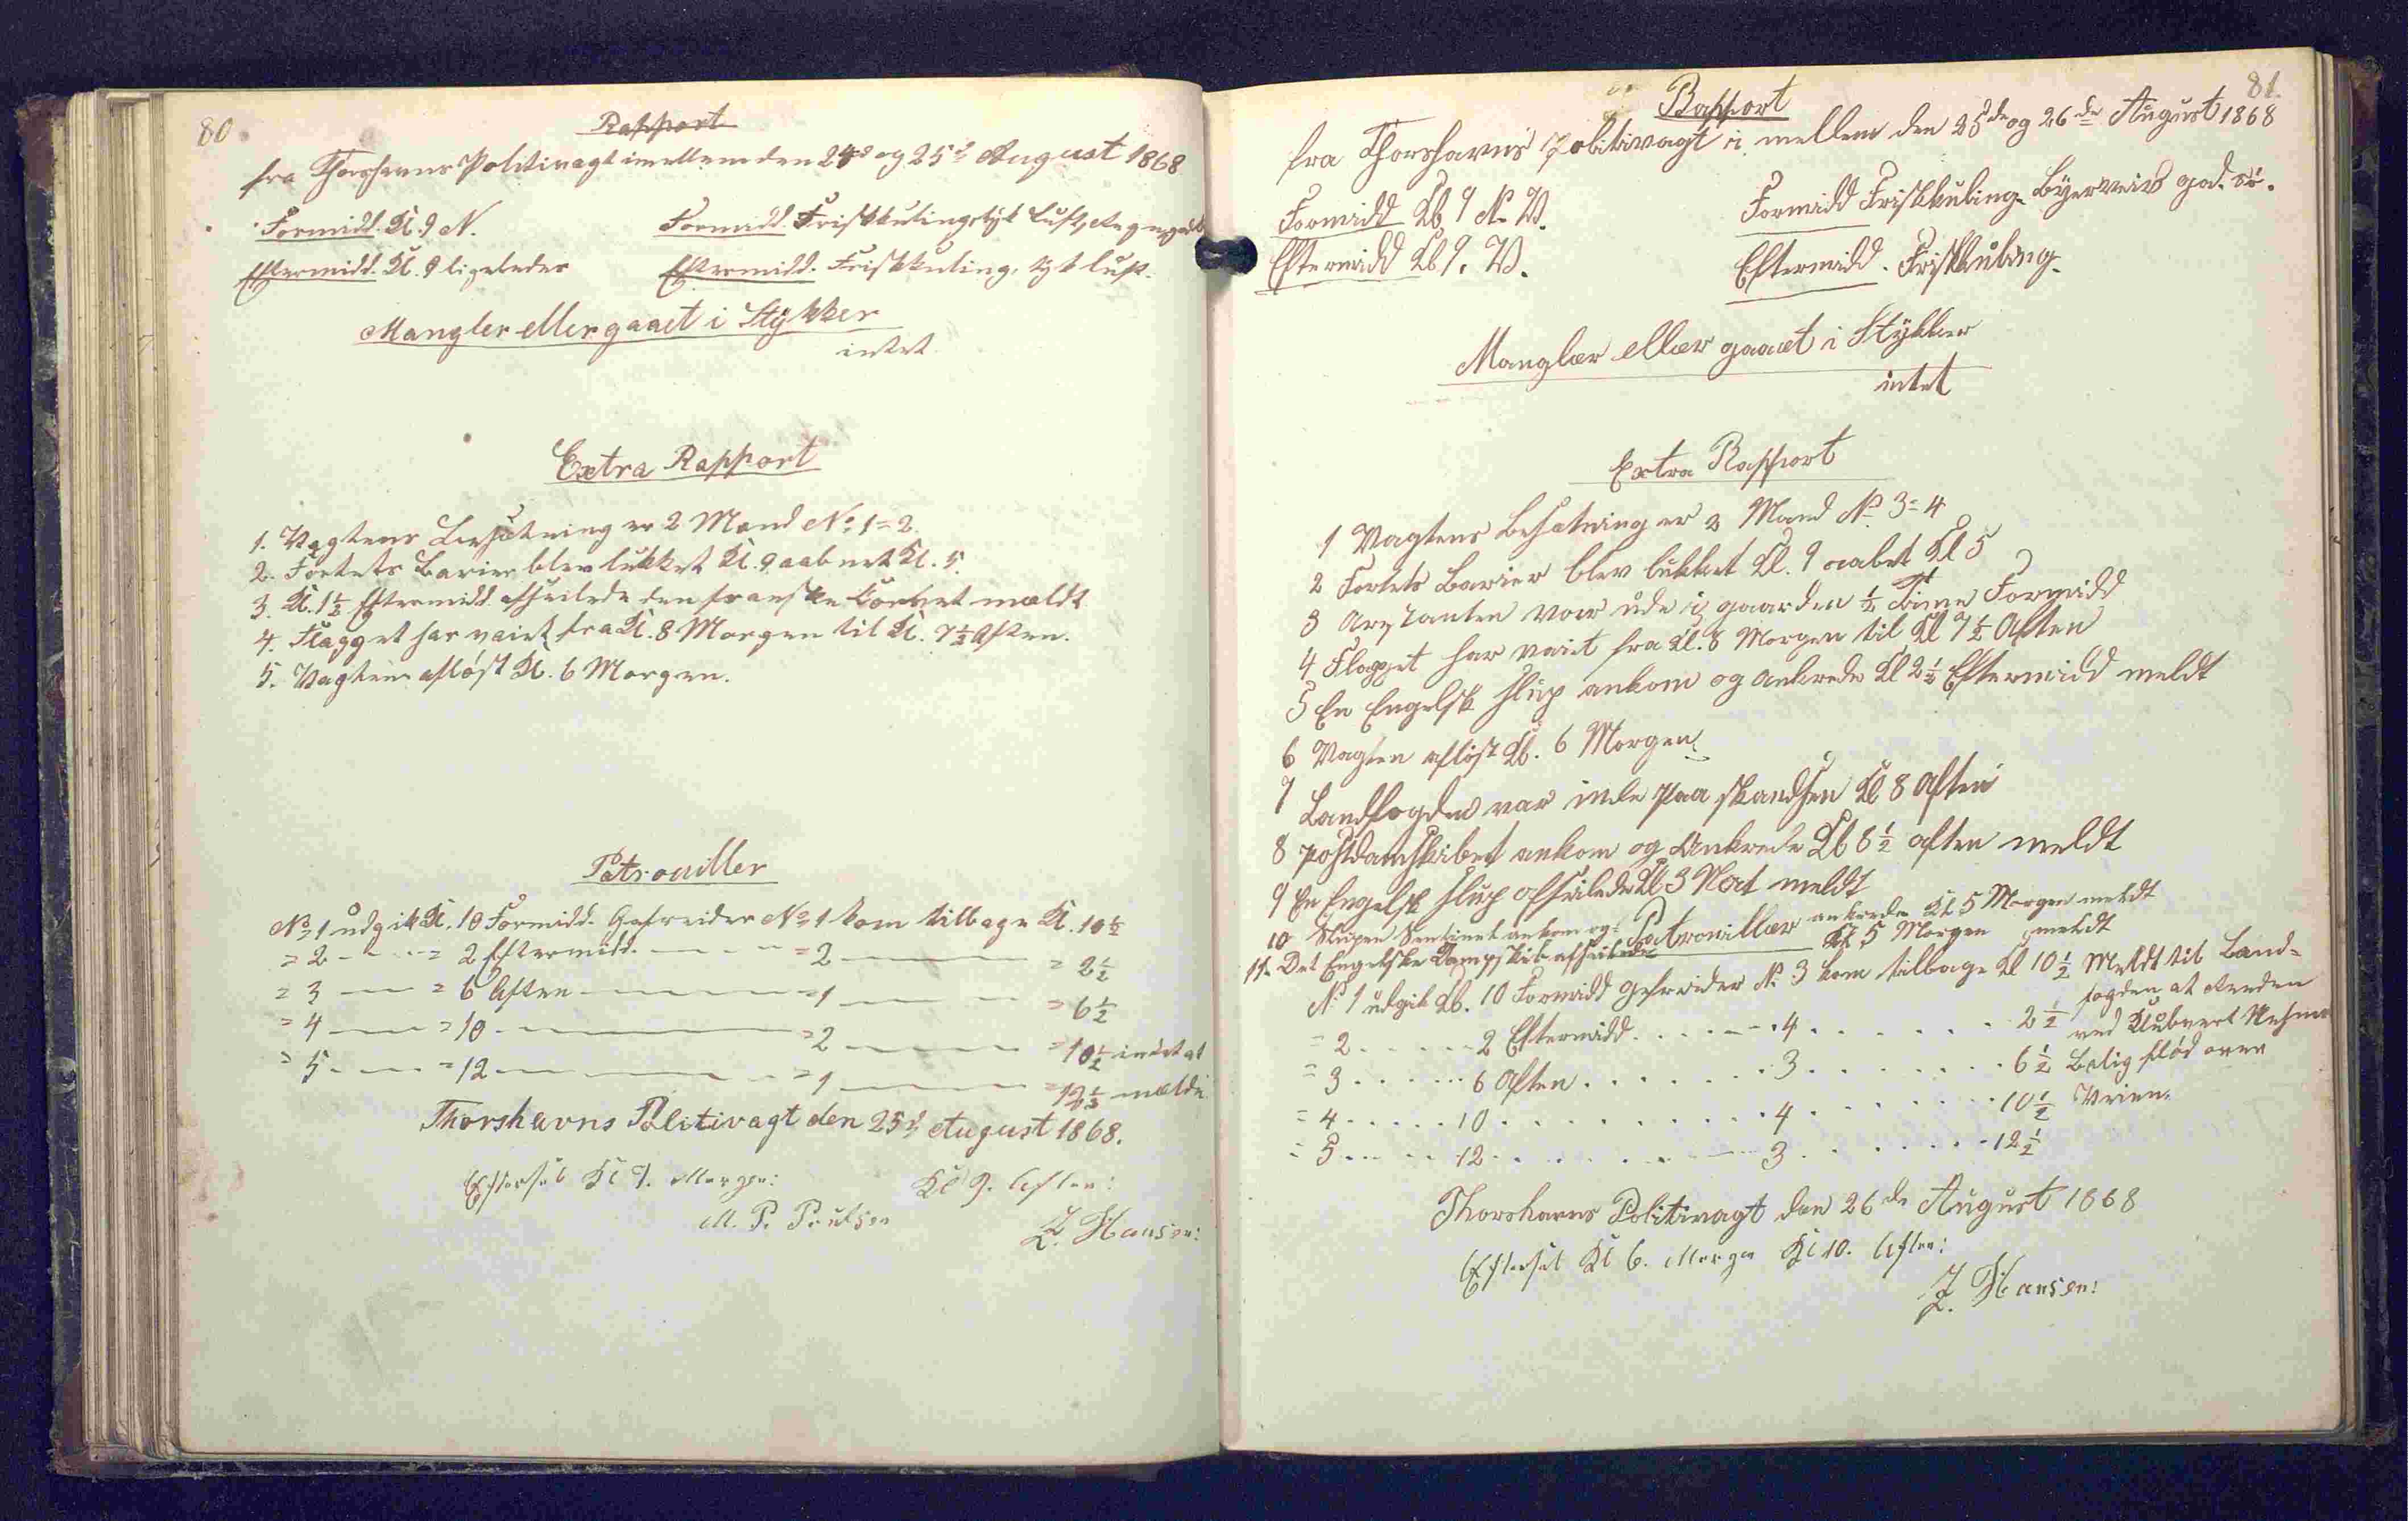 80.
Rapport
fra Thorshavns Politivagt imellem den 24d og 25d August 1868
Formidd. Kl. 9 N.
Formidd. Friskkuling tyk Luft, Regn
Eftermidd. Kl. 9 ligeledes
Eftermidd. Friskkuling, tyk Luft.
Mangler eller gaaet i Stykker
intet
Extra Rapport
1. Vagtens Besætning er 2 Mand No 1 = 2.
2. Fortets Barier blev lukket Kl. 9 aabnet Kl. 5.
3. Kl. 1½ Eftermidd. afseilede den franske meldt
4. Flagget har vaiet fra Kl. 8 Morgen til Kl. 7½ Aften.
5. Vagten afløst Kl. 6 Morgen.
Patrouiller
No 1 udgik Kl. 10 Formidd. Gefreider No 1 kom tilbage Kl. 10½
= 2 — = 2 Eftermidd. — = 2 — = 2½
= 3 — = 6 Aften — = 1 — = 6½
= 4 — = 10 — = 2 — = 10½ intet at
= 5 — = 12 — = 1 — = 12½ melde
Thorshavns Politivagt den 25d August 1868.
Efterset Kl 7. Morgen: Kl 9. Aften:
M. P. Poulsen
Z. Hansen:
81.
Rapport
fra Thorshavns Politivagt i mellem den 25de og 26de August 1868
Formidd Kl 9 N. V.
Formidd Friskkuling Byerveir god
Eftermidd Kl 9. V.
Eftermidd. Friskkuling.
Mangler eller gaaet i Stykker
intet
Extra Rapport
1 Vagtens Besætning er 2 Mand No 3 = 4
2 Fortets Barier blev lukket Kl. 9 aabet Kl 5
3 Arestanten var ude i gaarden ½ Time Formidd
4 Flagget har vaiet fra Kl. 8 Morgen til Kl 7½ Aften
5 En Engelsk Slup ankom og ankrede Kl 2½ Eftermidd meldt
6 Vagten afløst Kl. 6 Morgen.
7 Landfogden var inde paa skandsen Kl 8 Aften
8 postdamskibet ankom og Ankrede Kl 8½ aften meldt
9 En Engelsk Slup afseilede Kl 3 Nat meldt
10 Slupen Sentinel ankom og ankrede Kl 5 Morgen meldt
11. Det Engelske Dampskib afseilede Kl 5 Morgen meldt
Patrouiller
No 1 udgik Kl. 10 Formidd gefreider No 3 kom tilbage Kl 10½ Meldt til Land-
fogden at Renden
= 2 . . . 2 Eftermidd. . . . 4 . . . 2½ ved
= 3 . . . 6 Aften . . . 3 . . . 6½ Bolig flød over
= 4 . . . 10 . . . 4 . . . 10½ Veien.
= 5 . . . 12 . . . 3 . . . 12½
Thorshavns Politivagt den 26de August 1868
Efterset Kl 6. Morgen Kl 10. Aften:
Z. Hansen: